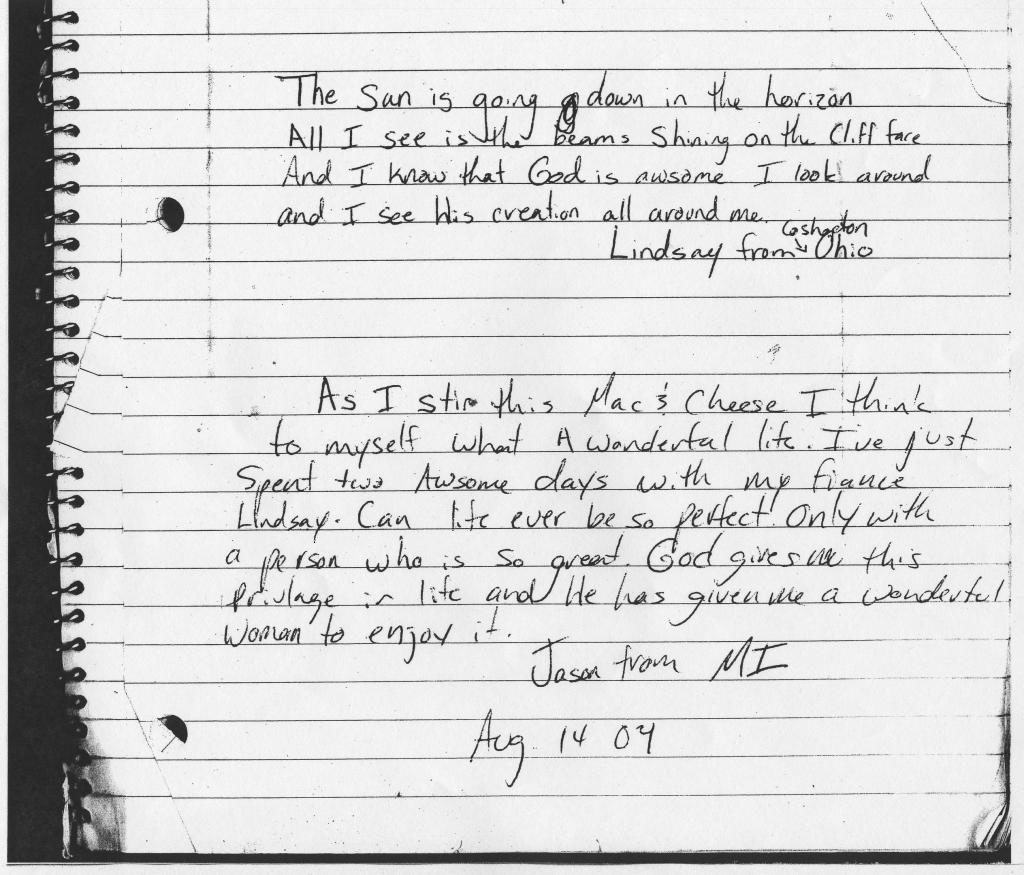 The Sun is going down in the horizon
All I see is the beams Shining on the Cliff face
And I know that God is awsome I look around
and I see His creation all around me.
Coshocton
Lindsay from Ohio
As I stir this Mac & Cheese I think
to myself what A wonderful life. I've just
Spent two Awsome days with my fiance
Lindsay. Can life ever be so perfect. Only with
a person who is so great. God gives me this
privlage in life and He has given me a wonderful
woman to enjoy it.
Jason from MI
Aug 14 04